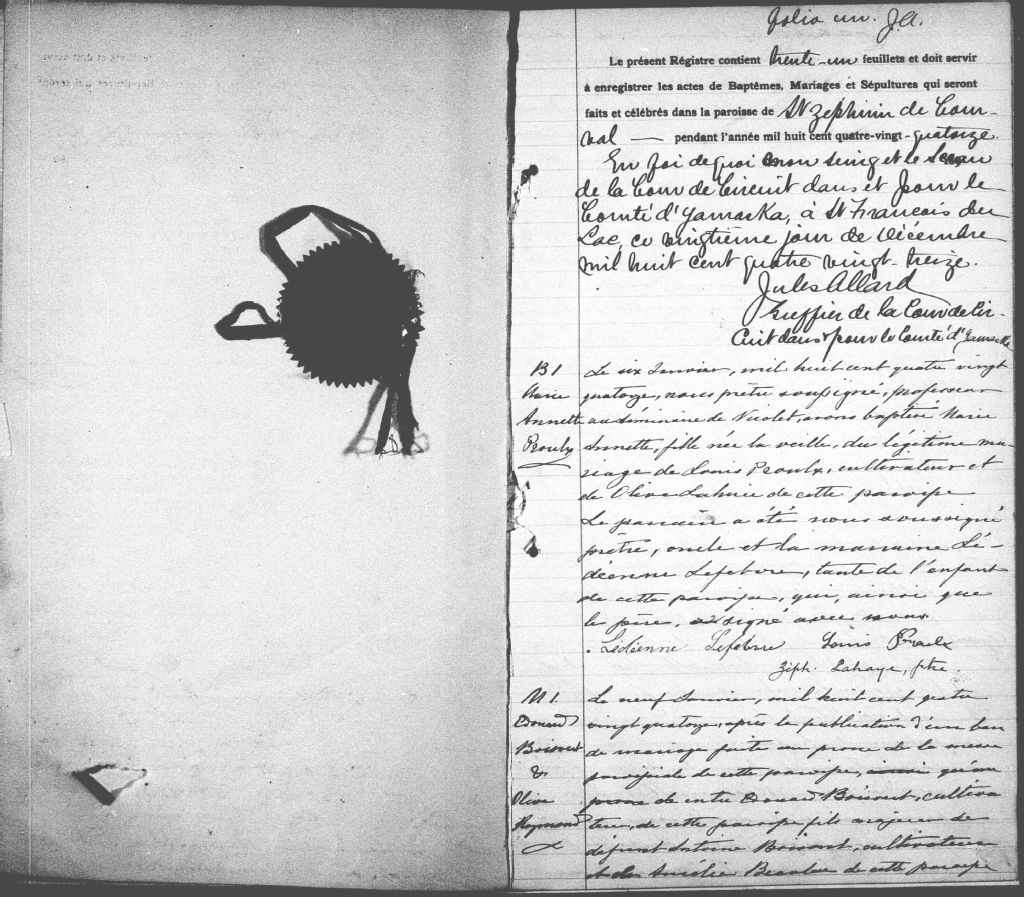 folio un. J.A.
Le présent Régistre contient trente-un feuillets et doit servir
à enregistrer les actes de Baptêmes, Mariages et Sépultures qui seront
faits et célébrés dans la paroisse de St Zéphirin de Cour-
val — pendant l'année mil huit cent quatre-vingt-quatorze.
En foi de quoi mon seing et le Sceau
de la Cour de Circuit dans et pour le
Comté d'Yamaska, à St François du
Lac, ce vingtième jour de Décembre
mil huit cent quatre vingt-treize.
Jules Allard
Greffier de la Cour de Cir-
cuit dans & pour le Comté d'Yamaska
B 1
Marie
Annette
Proulx
Le six Janvier, mil huit cent quatre vingt
quatorze, nous prêtre soussigné, professeur
au séminaire de Nicolet, avons baptisé Marie
Annette, fille née la veille, du légitime ma-
riage de Louis Proulx, cultivateur et
de Olive Lahaie de cette paroisse
Le parrain a été nous soussigné
prêtre, oncle et la marraine Lé-
déenne Lefebvre, tante de l'enfant
de cette paroisse, qui, ainsi que
le père, a signé avec nous
Lédéenne Lefebvre Louis Proulx
Zéph. Lahaye, ptre.
M 1.
Edouard
Boisvert
&
Olive
Raymond
Le neuf Janvier, mil huit cent quatre
vingt quatorze, après la publication d'un ban
de mariage faite au prône de la messe
paroissiale de cette paroisse, qu'au
prone de entre Edouard Boisvert, cultiva
teur, de cette paroisse fils majeur de
défunt Antoine Boisvert, cultivateur
et de Amélie de cette paroisse